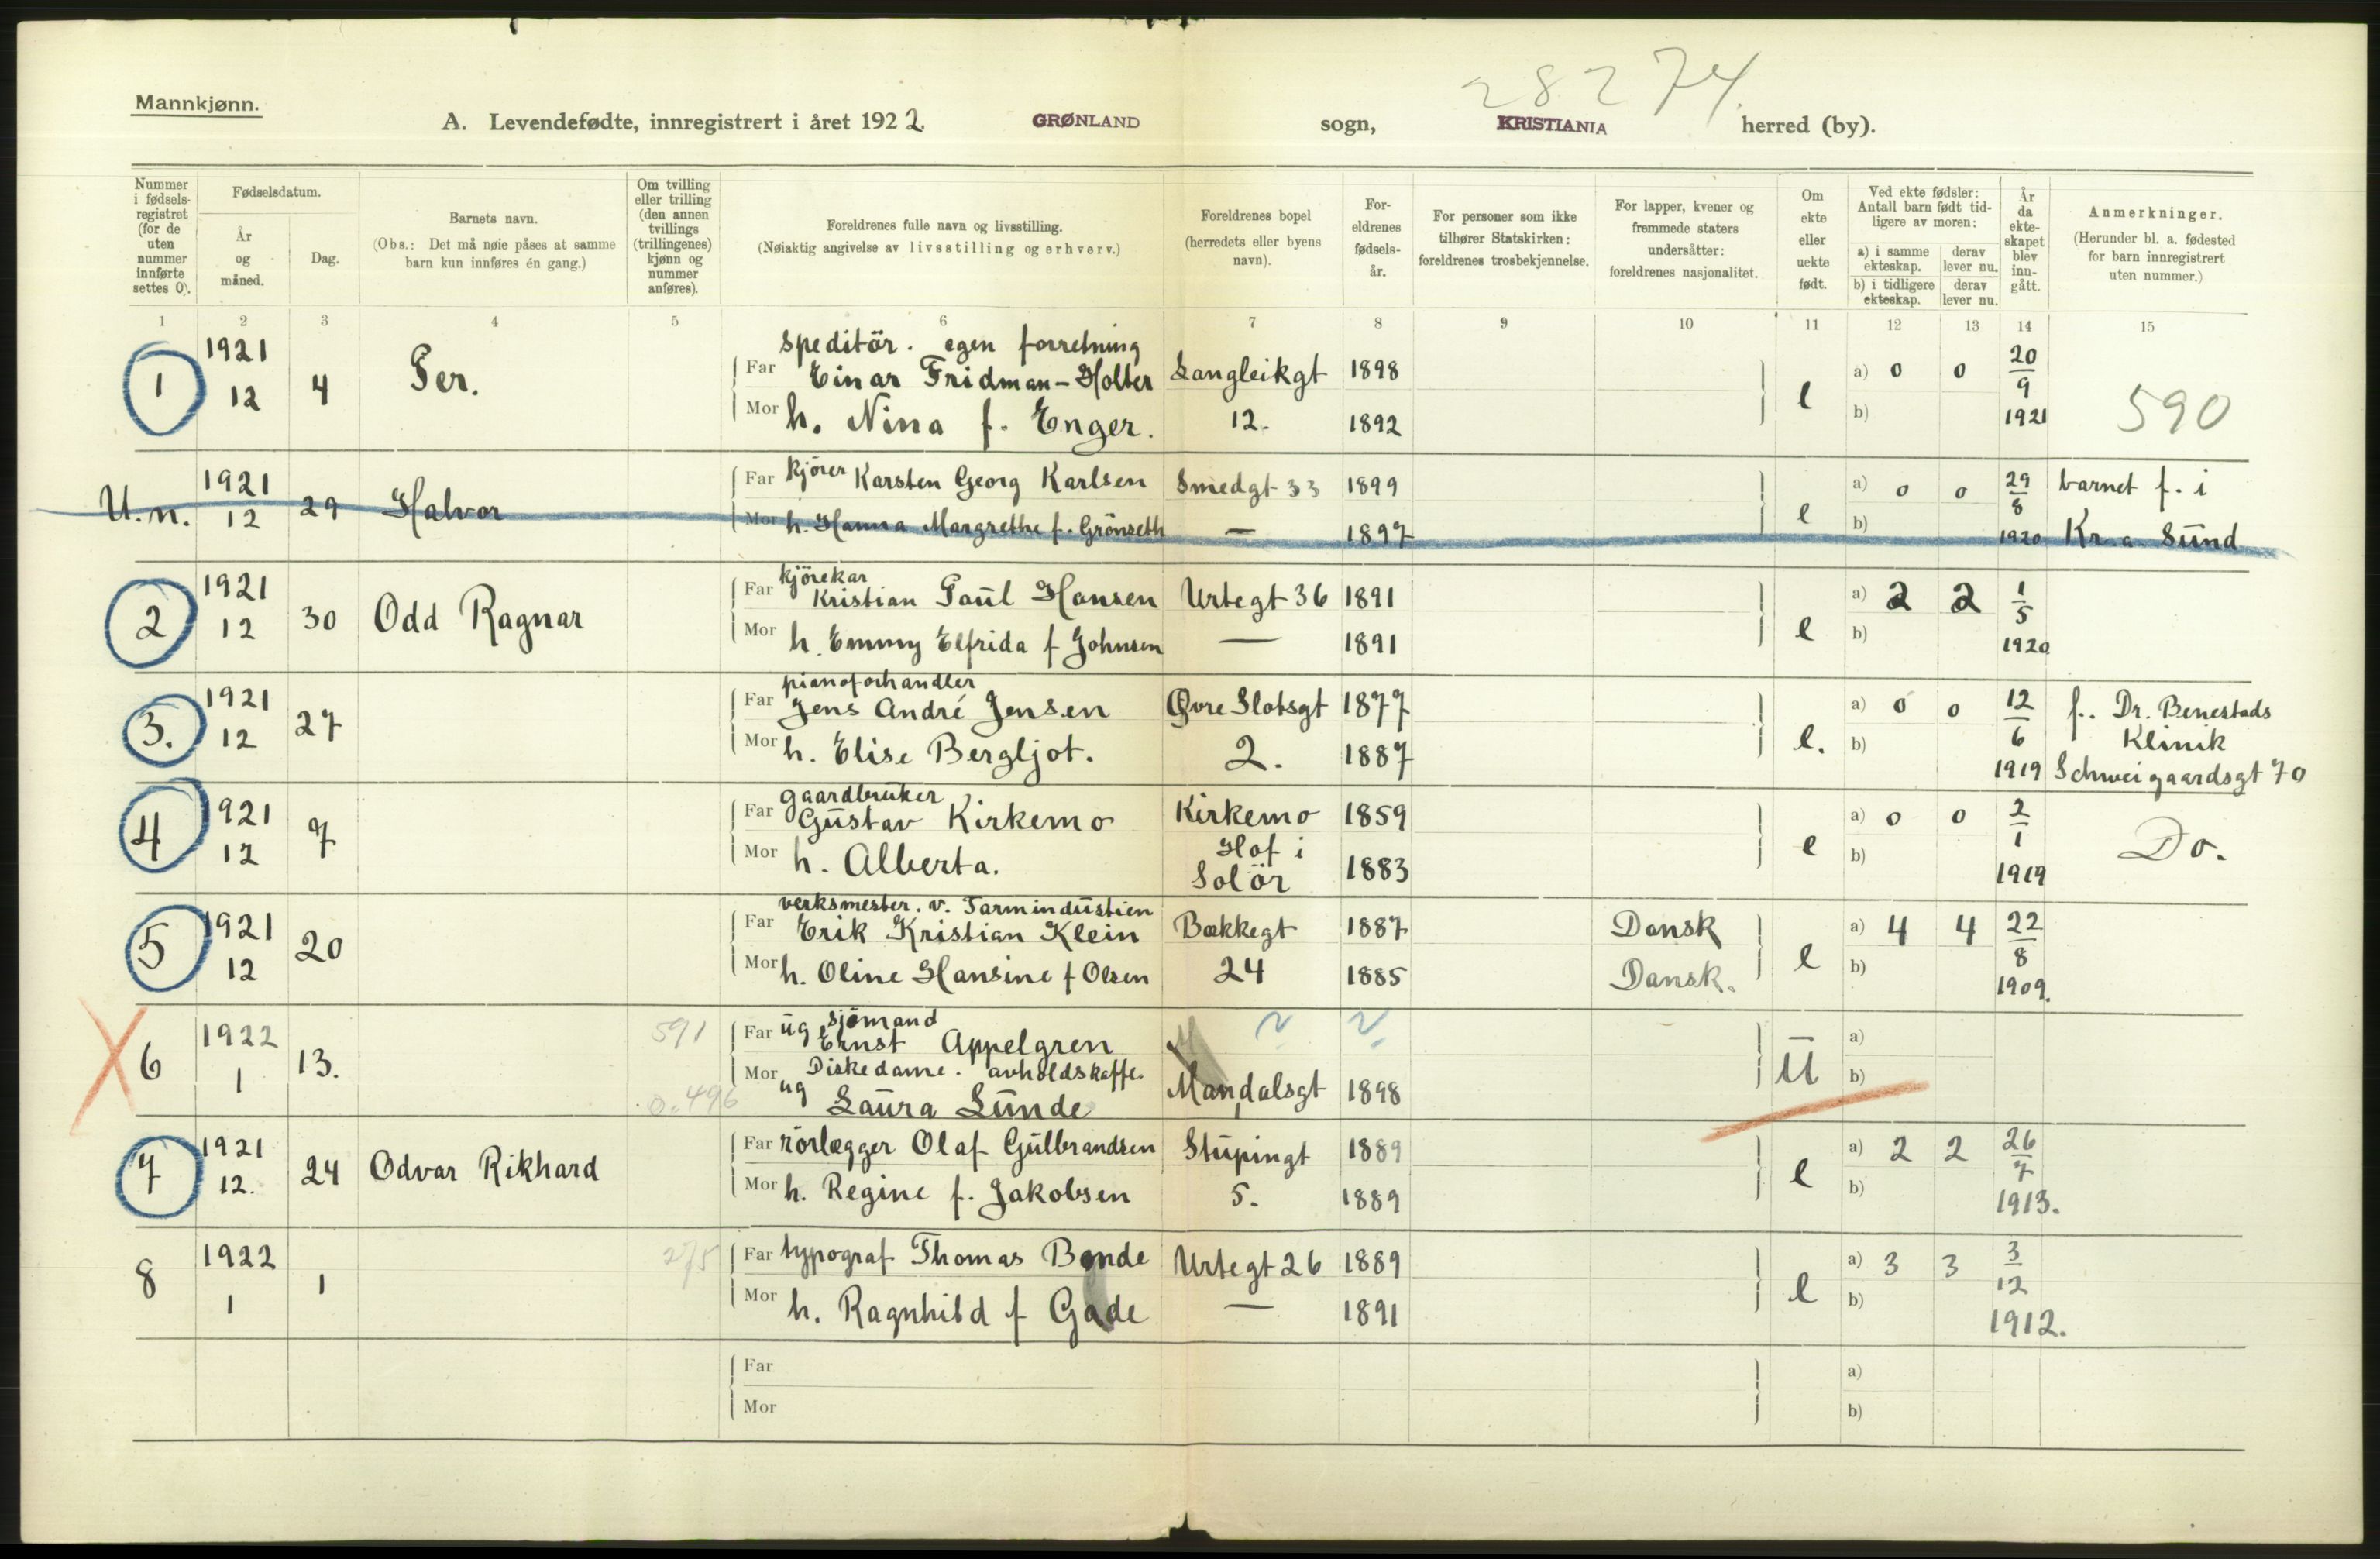 28274
Mannkjønn.
A. Levendefødte, innregistrert i året 1922. GRØNLAND sogn, KRISTIANIA herred (by).
Nummer i fødselsregistret (for de uten nummer innførte settes 0).
Fødselsdatum.
År og måned.
Dag.
Barnets navn.
(Obs.: Det må nøie påses at samme barn kun innføres én gang.)
Om tvilling eller trilling (den annen tvillings (trillingenes) kjønn og nummer anføres).
Foreldrenes fulle navn og livsstilling.
(Nøiaktig angivelse av livsstilling og erhverv.)
Foreldrenes bopel (herredets eller byens navn).
Foreldrenes fødselsår.
For personer som ikke tilhører Statskirken: foreldrenes trosbekjennelse.
For lapper, kvener og fremmede staters undersåtter: foreldrenes nasjonalitet.
Om ekte eller uekte født.
Ved ekte fødsler: Antall barn født tidligere av moren:
a) i samme ekteskap. derav lever nu.
b) i tidligere ekteskap. derav lever nu.
År da ekteskapet blev inngått.
Anmerkninger.
(Herunder bl. a. fødested for barn innregistrert uten nummer.)
1 2 3 4 5 6 7 8 9 10 11 12 13 14 15
1 1921 12 4 Per.
speditör. egen forretning
Far Einar Fridman-Holter Langleikgt 1898 e a) 0 0 20/9 1921 590
Mor h. Nina f. Enger. 12. 1892 b)
U.n. 1921 12 29 Halvor
Far kjörer Karsten Georg Karlsen Smedgt 33 1899 e a) 0 0 29/8 1920 barnet f. i
Mor h. Hanna Margrethe f. Grönseth — 1897 b) Kr.a. Sund
2 1921 12 30 Odd Ragnar
kjörekar
Far Kristian Paul Hansen Urtegt 36 1891 e a) 2 2 1/5 1920
Mor h. Emmy Elfrida f Johnsen — 1891 b)
3. 1921 12 27
pianoforhandler
Far Jens André Jensen Øvre Slotsgt 1877 e. a) 0 0 12/6 1919 f. Dr. Benestads Klinik
Mor h. Elise Bergljot. 2. 1887 b) Schweigaardsgt 70
4 1921 12 7
gaardbruker
Far Gustav Kirkemo Kirkemo 1859 e a) 0 0 2/1 1919 Do.
Mor h. Alberta. Hof i Solör 1883 b)
5 1921 12 20
verksmester. v. Tarmindustien
Far Erik Kristian Klein Bækkegt 1887 Dansk e a) 4 4 22/8 1909.
Mor h. Oline Hansine f Olsen 24 1885 Dansk. b)
6 1922 1 13. 591
Far ug sjömand Ernst Appelgren ü a)
Mor Diskedame. avholdskaffe.
0.496 ug Laura Lunde Mandalsgt 1898 b)
7 1921 12. 24 Odvar Rikhard
Far rörlægger Olaf Gulbrandsen Stupingt 1889 e a) 2 2 26/7 1913.
Mor h. Regine f. Jakobsen 5. 1889 b)
8 1922 1 1 275
Far typograf Thomas Bonde Urtegt 26 1889 e a) 3 3 3/12 1912.
Mor h. Ragnhild f Gade — 1891 b)
Far a)
Mor b)